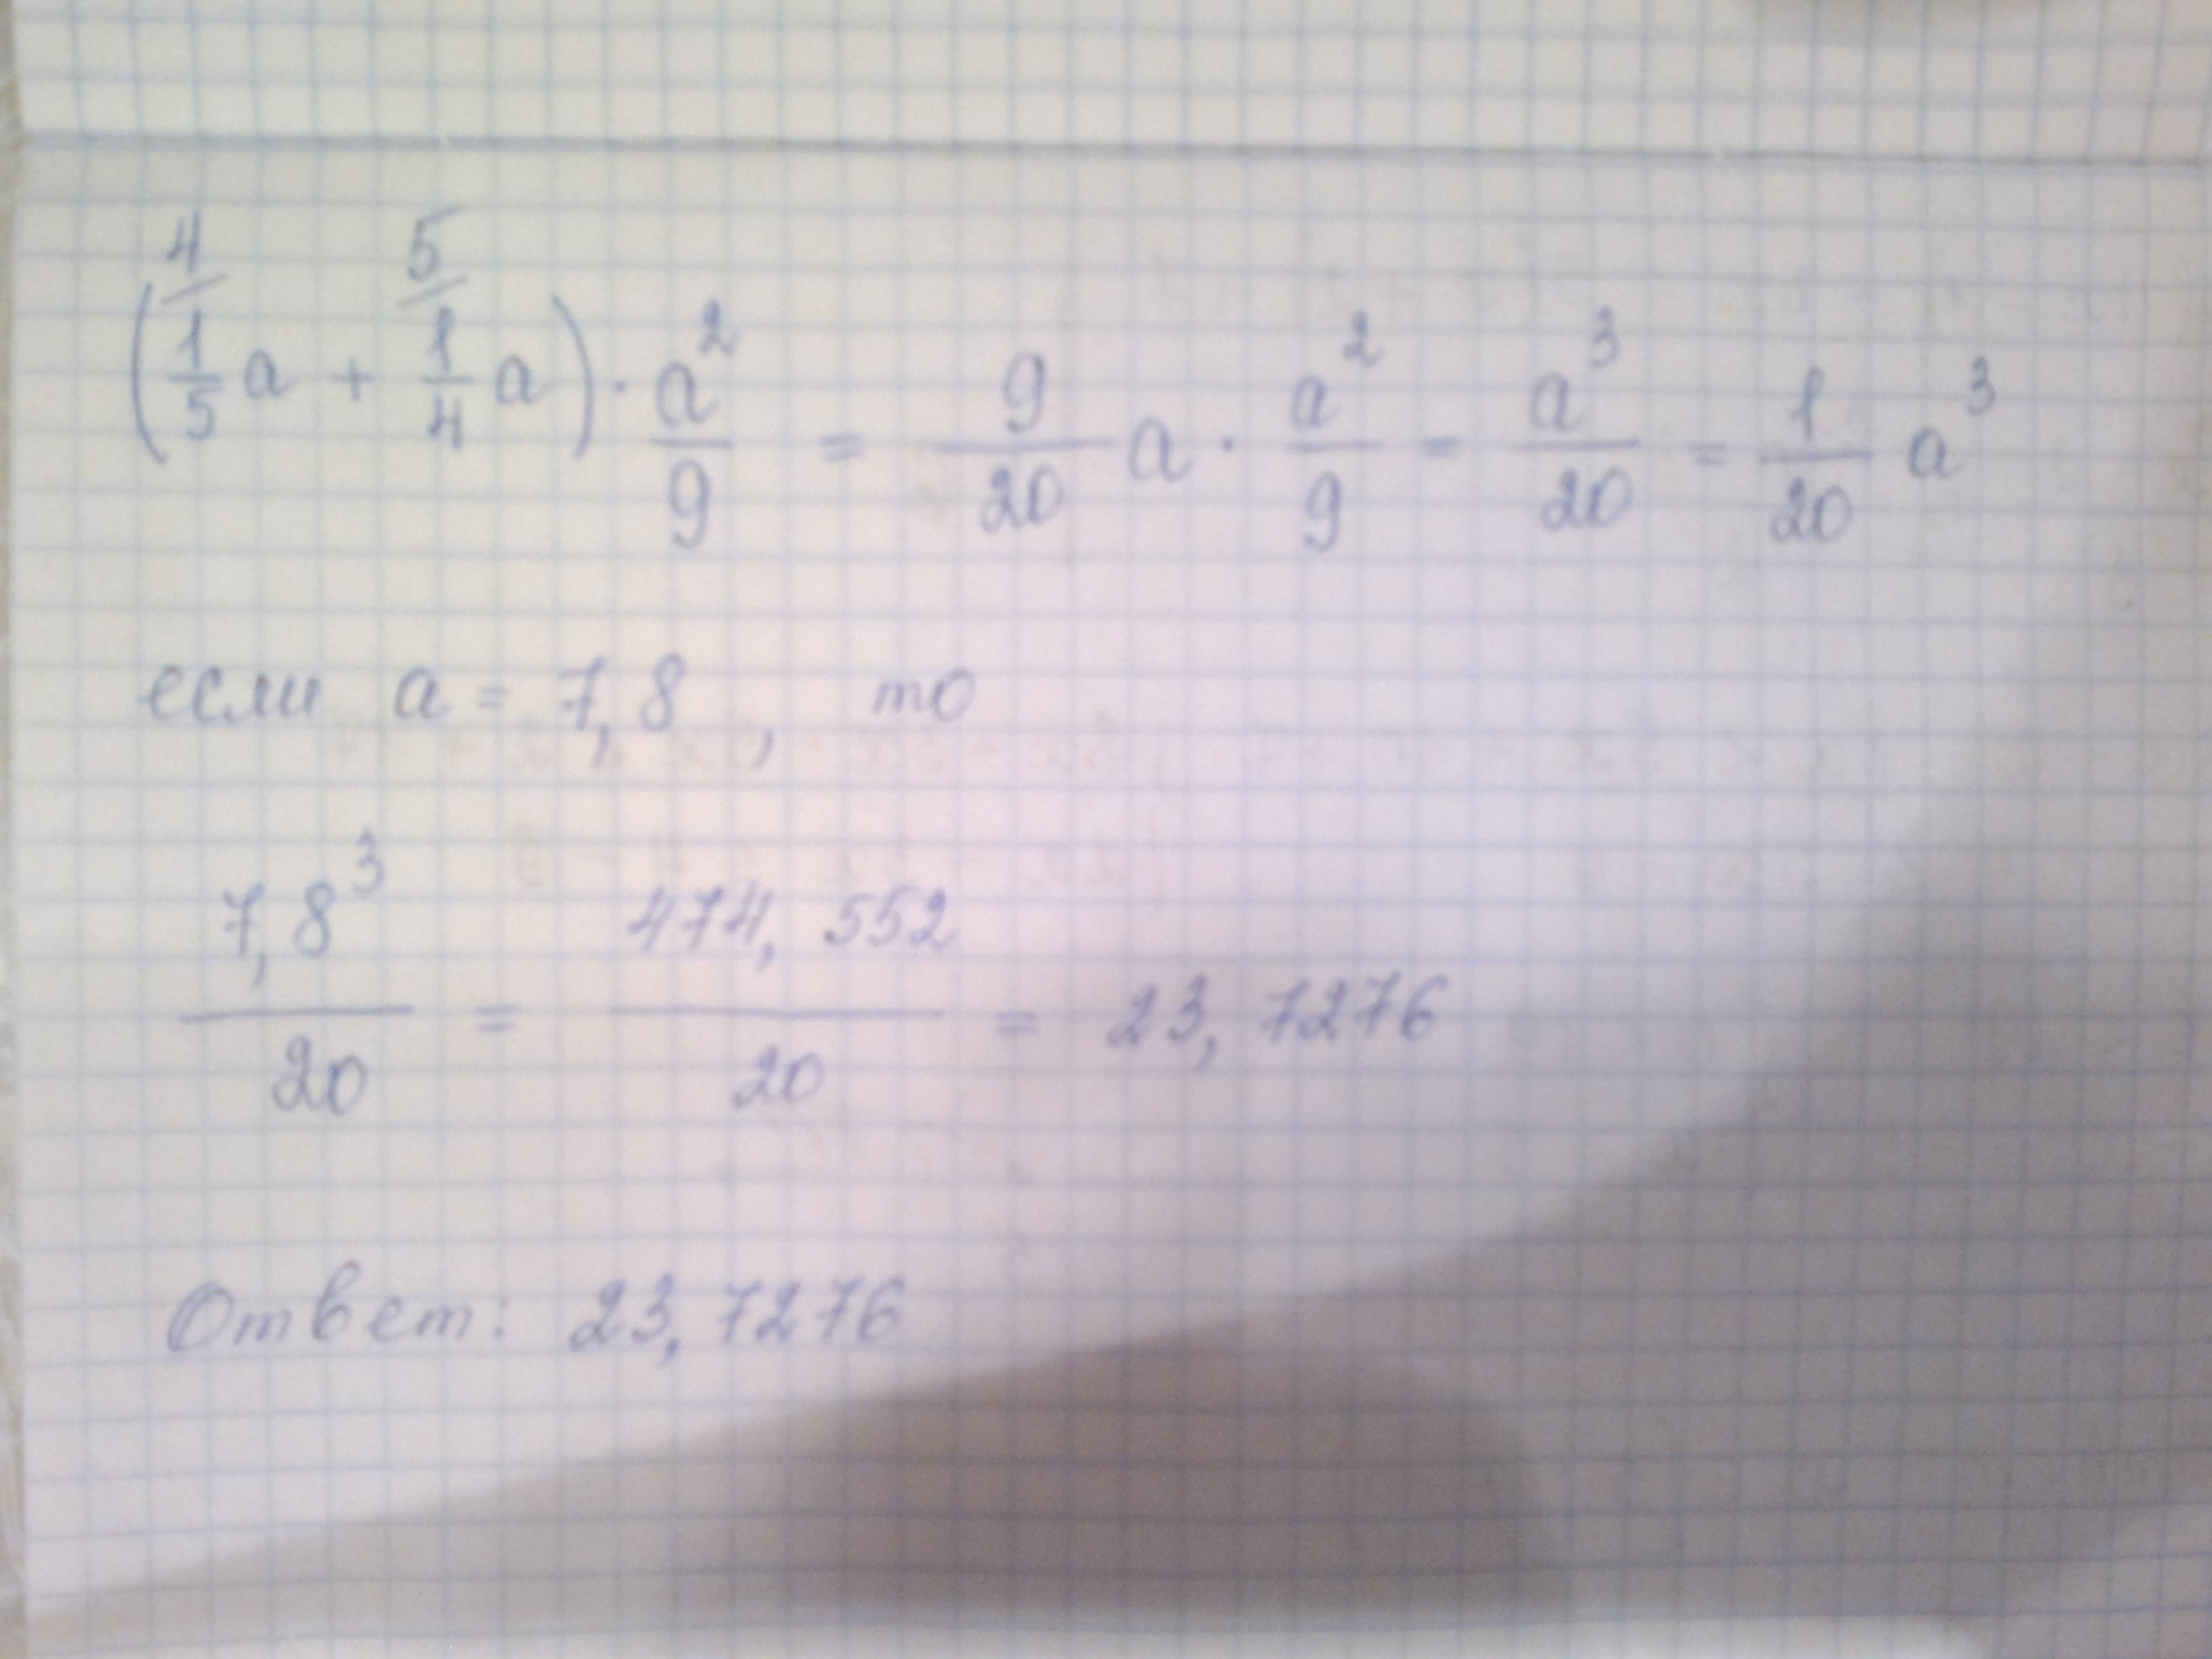 (4/ 1/5 a + 5/ 1/4 a) · a²/9 = 9/20 a · a²/9 = a³/20 = 1/20 a³
если а = 7,8 , то
7,8³/20 = 474,552/20 = 23,7276
Ответ: 23,7276